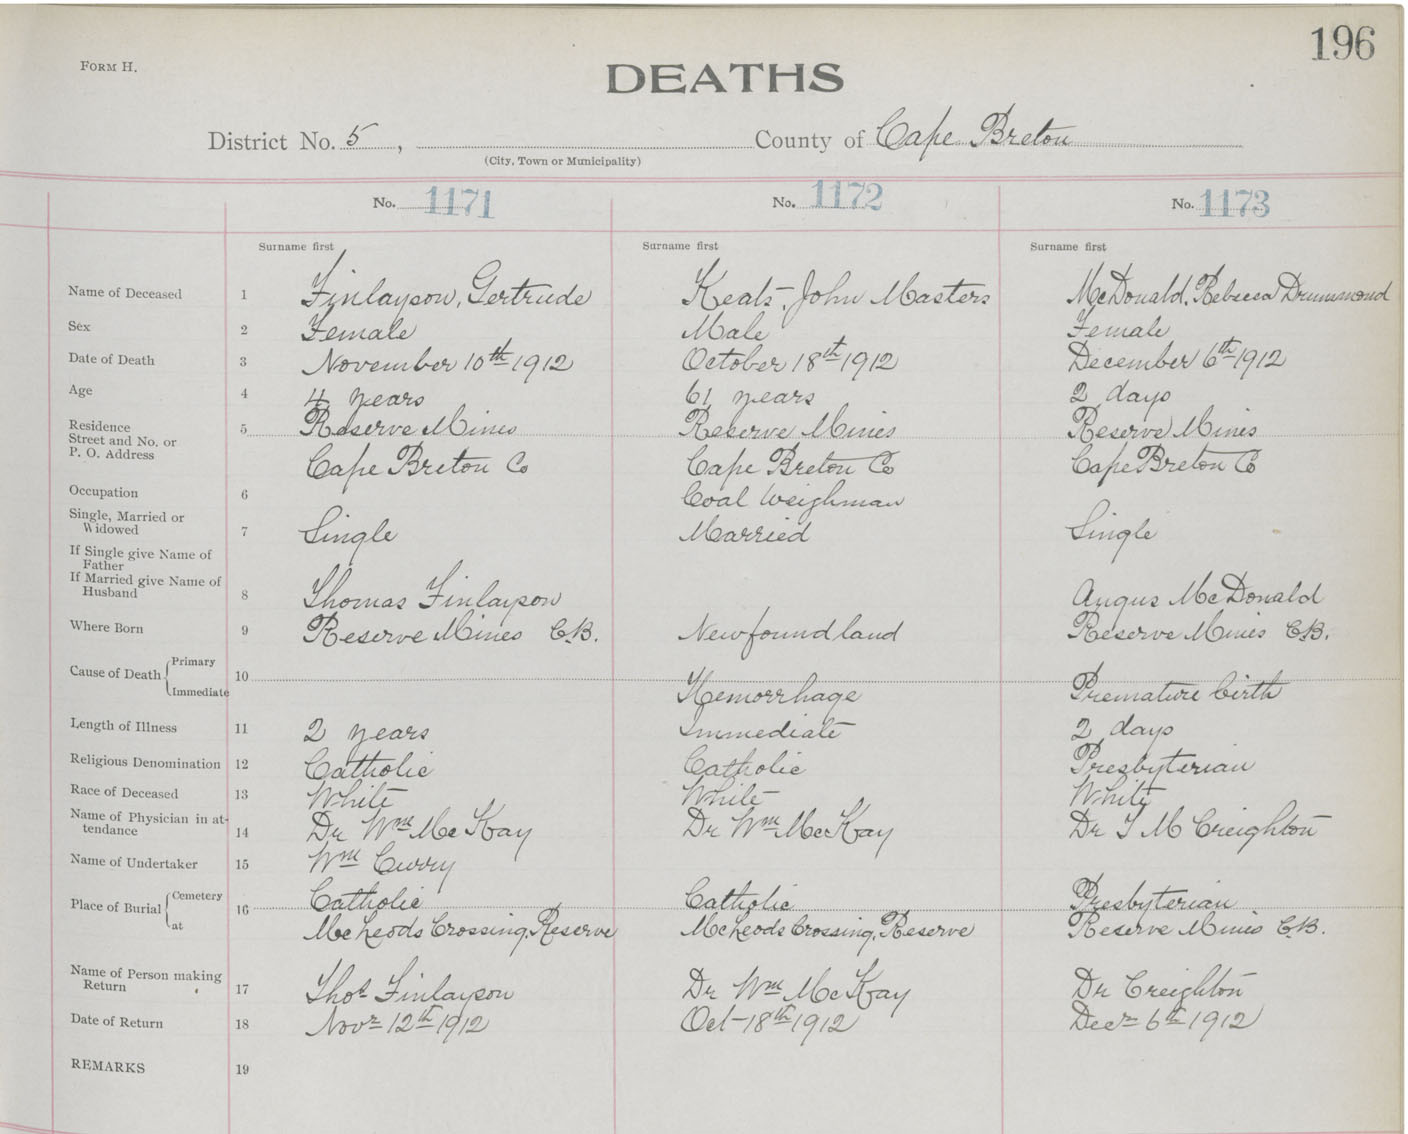 196
FORM H.
DEATHS
District No. 5, County of Cape Breton
(City, Town or Municipality)
No. 1171 No. 1172 No. 1173
Surname first Surname first Surname first
Name of Deceased 1 Finlayson, Gertrude Keats, John Masters McDonald, Rebecca Drummond
Sex 2 Female Male Female
Date of Death 3 November 10th 1912 October 18th 1912 December 6th 1912
Age 4 4 years 61 years 2 days
Residence 5 Reserve Mines Reserve Mines Reserve Mines
Street and No. or
P. O. Address Cape Breton Co Cape Breton Co Cape Breton Co
Occupation 6 Coal Weighman
Single, Married or
Widowed 7 Single Married Single
If Single give Name of
Father
If Married give Name of
Husband 8 Thomas Finlayson Angus McDonald
Where Born 9 Reserve Mines C.B. Newfoundland Reserve Mines C.B.
Cause of Death Primary 10
Immediate Hemorrhage Premature birth
Length of Illness 11 2 years Immediate 2 days
Religious Denomination 12 Catholic Catholic Presbyterian
Race of Deceased 13 White White White
Name of Physician in at-
tendance 14 Dr Wm McKay Dr Wm McKay Dr T M Creighton
Name of Undertaker 15 Wm Curry
Place of Burial Cemetery 16 Catholic Catholic Presbyterian
at McLeods Crossing, Reserve McLeods Crossing, Reserve Reserve Mines C.B.
Name of Person making
Return 17 Thos Finlayson Dr Wm McKay Dr Creighton
Date of Return 18 Novr 12th 1912 Oct-18th 1912 Decr 6th 1912
REMARKS 19